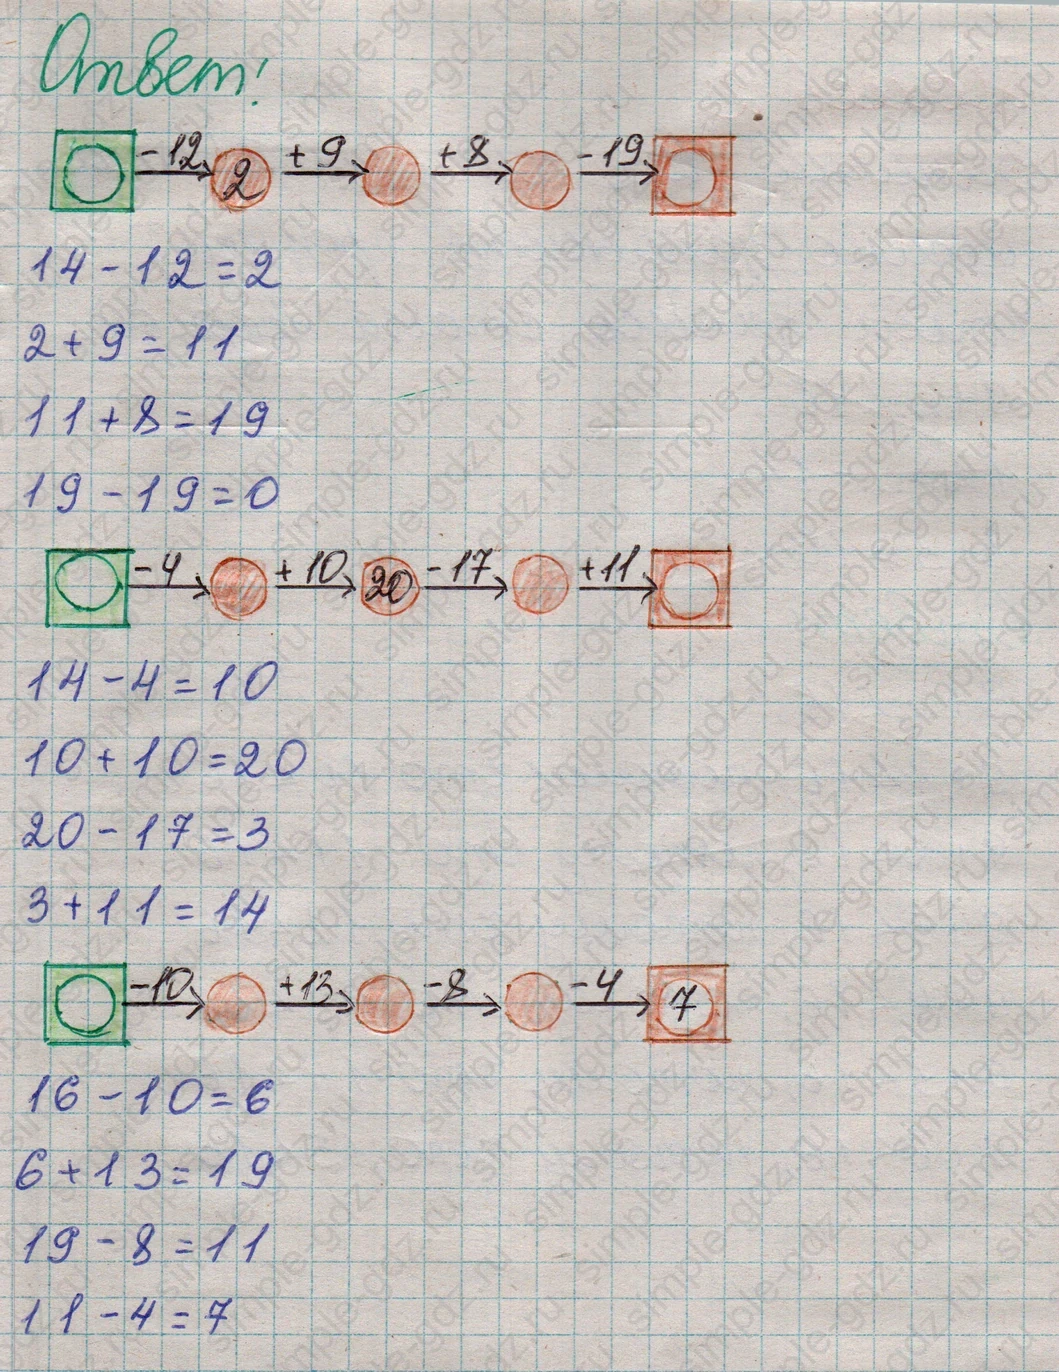 Ответ!
-12 2 +9 +8 -19
14-12=2
2+9=11
11+8=19
19-19=0
-4 +10 20 -17 +11
14-4=10
10+10=20
20-17=3
3+11=14
-10 +13 -8 -4 7
16-10=6
6+13=19
19-8=11
11-4=7
simple-gdz.ru